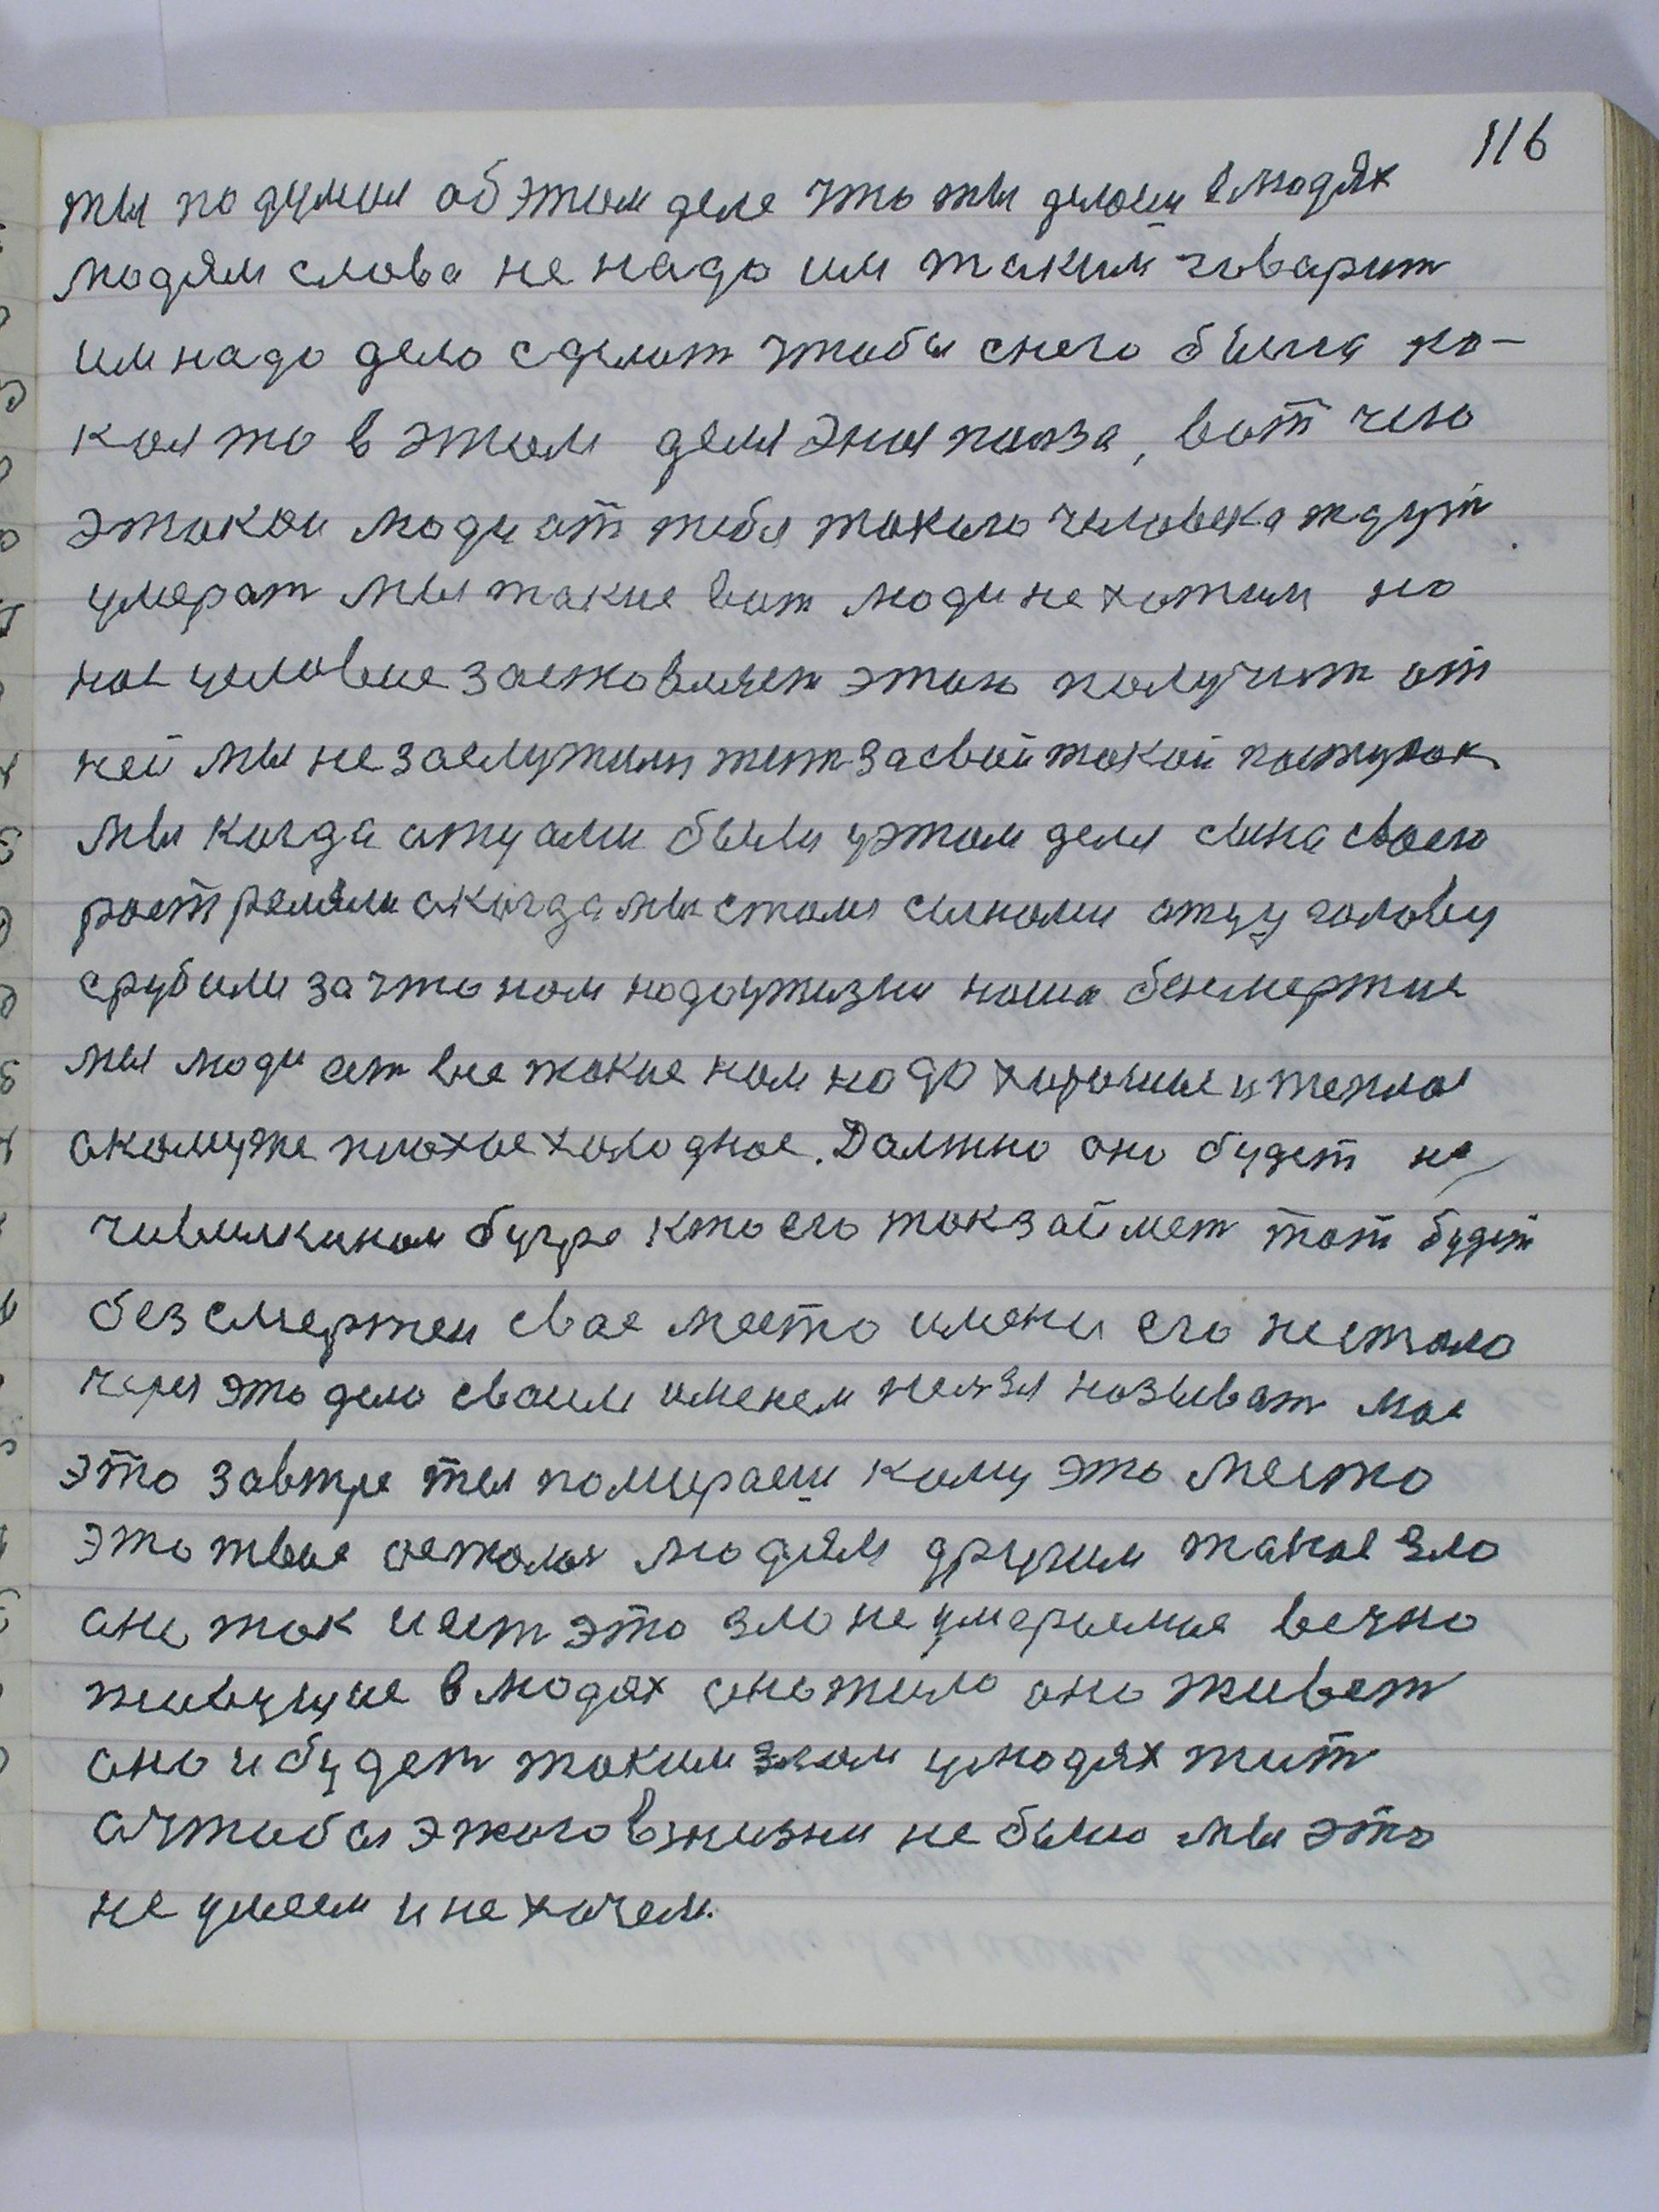 116
ты подумай об этом деле что ты делаеш в людях
людям слова не надо им таким говарит
им надо дело сделат чтобы снего была ка-
кая то в этом деля эная полза, вот чего
этакаи люди от тибя такого человека ждут
умерат мы такие вот люди не хотим но
нас условие заставляет этаго получит от
ней мы не заслужили жит за свой такой поступок
мы когда атцами были у этом деля сына своего
растреляли а когда мы стали сынами атцу голову
срубили за что нам надо у жизни наша безсмертие
мы люди ест все такие нам надо хорошие и теплое
акомуже плохое холодное. Далжно оно будет на
чивилкином бугре кто его так займет тот будет
без смертен свае место имени его не стало
через это дело своим именем нелзя называт мое
это завтре ты помираеш кому это место
это твое астолос людям другим такое зло
оно так и ест это зло не умираемае вечно
живущие в людях оно жило оно живет
оно и будет таким злом у людях жит
а чтобы этого в жизни не было мы это
не умеем и не хочем.